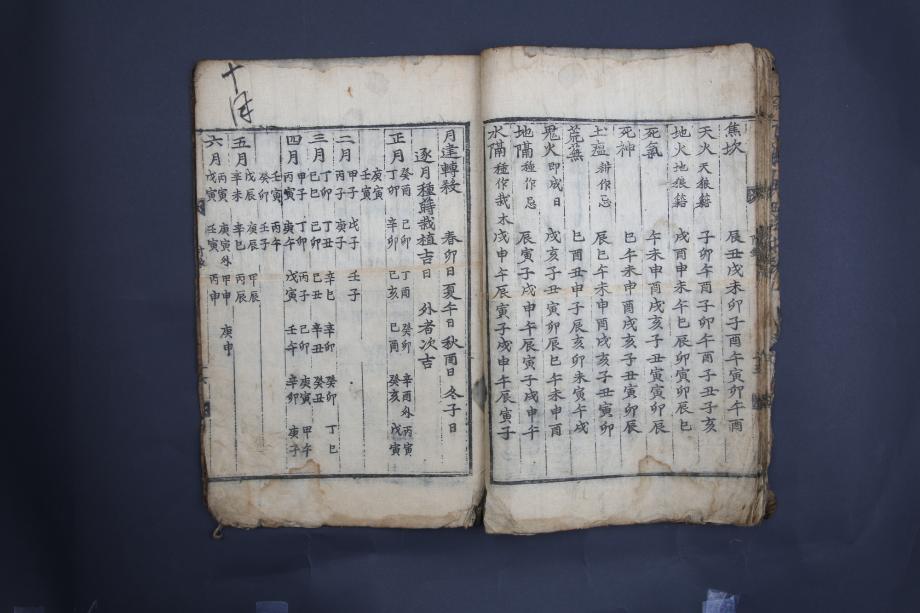 焦坎 辰丑戌未卯子酉午寅卯午酉
天火 天狼籍 子卯午酉子卯午酉子丑子亥
地火 地狼籍 戌酉申未午巳辰卯寅卯辰巳
死氣 午未申酉戌亥子丑寅寅卯辰
死神 巳午未申酉戌亥子丑寅卯辰
土瘟 耕作忌 辰巳午未申酉戌亥子丑寅卯
荒蕪 巳酉丑申子辰亥卯未寅午戌
鬼火 即成日 戌亥子丑寅卯辰巳午未申酉
地隔 種作忌 辰寅子戌申午辰寅子戌申午
水隔 種作栽木 戌申午辰寅子戌申午辰寅子
月建轉殺 春卯日夏午日秋酉日冬子日
逐月種蒔栽植吉日 外者次吉
正月 癸酉 己卯 丁酉 癸卯 辛酉外丙寅
丁卯 辛卯 己亥 己酉 癸亥 戊寅
庚寅
壬寅
二月 甲子 戊子 壬子
丙子 庚子
三月 丁卯 丁丑 辛巳 辛卯 癸卯 丁巳
己巳 己卯 己丑 辛丑 癸丑
四月 甲子 丁卯 丙子 己卯 庚寅 甲午
丙寅 庚午 戊寅 壬午 辛卯 庚子
壬寅 丙午
癸卯 壬子
五月 戊辰 庚辰 甲辰
辛未 辛巳 丙辰
六月 丙寅 庚寅外甲申 庚申
戊寅 壬寅 丙申
十